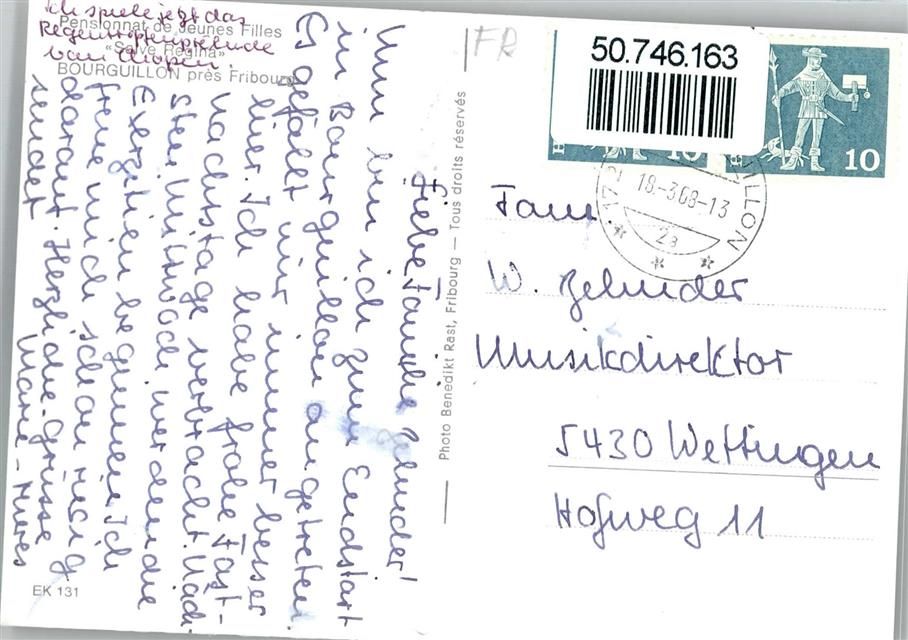 Ich spiele jetzt das
Regentropfenprelude
von Chopin.
Pensionnat de Jeunes Filles
«Salve Regina»
BOURGUILLON près Fribourg
Liebe Familie Zehnder!
Nun bin ich zum Endstart
in Bourguillon angetreten.
Es gefällt mir immer besser
hier. Ich habe frohe Fast-
nachtstage verbracht. Näch-
sten Mittwoch werden die
Exerzitien beginnen. Ich
freue mich schon riesig
darauf. Herzliche Grüsse
sendet Marie-Theres
EK 131
Photo Benedikt Rast, Fribourg — Tous droits réservés
FR
50.746.163
10
10
172
ILLON
18.-3.68-13
2a
Fam.
W. Zehnder
Musikdirektor
5430 Wettingen
Hofweg 11